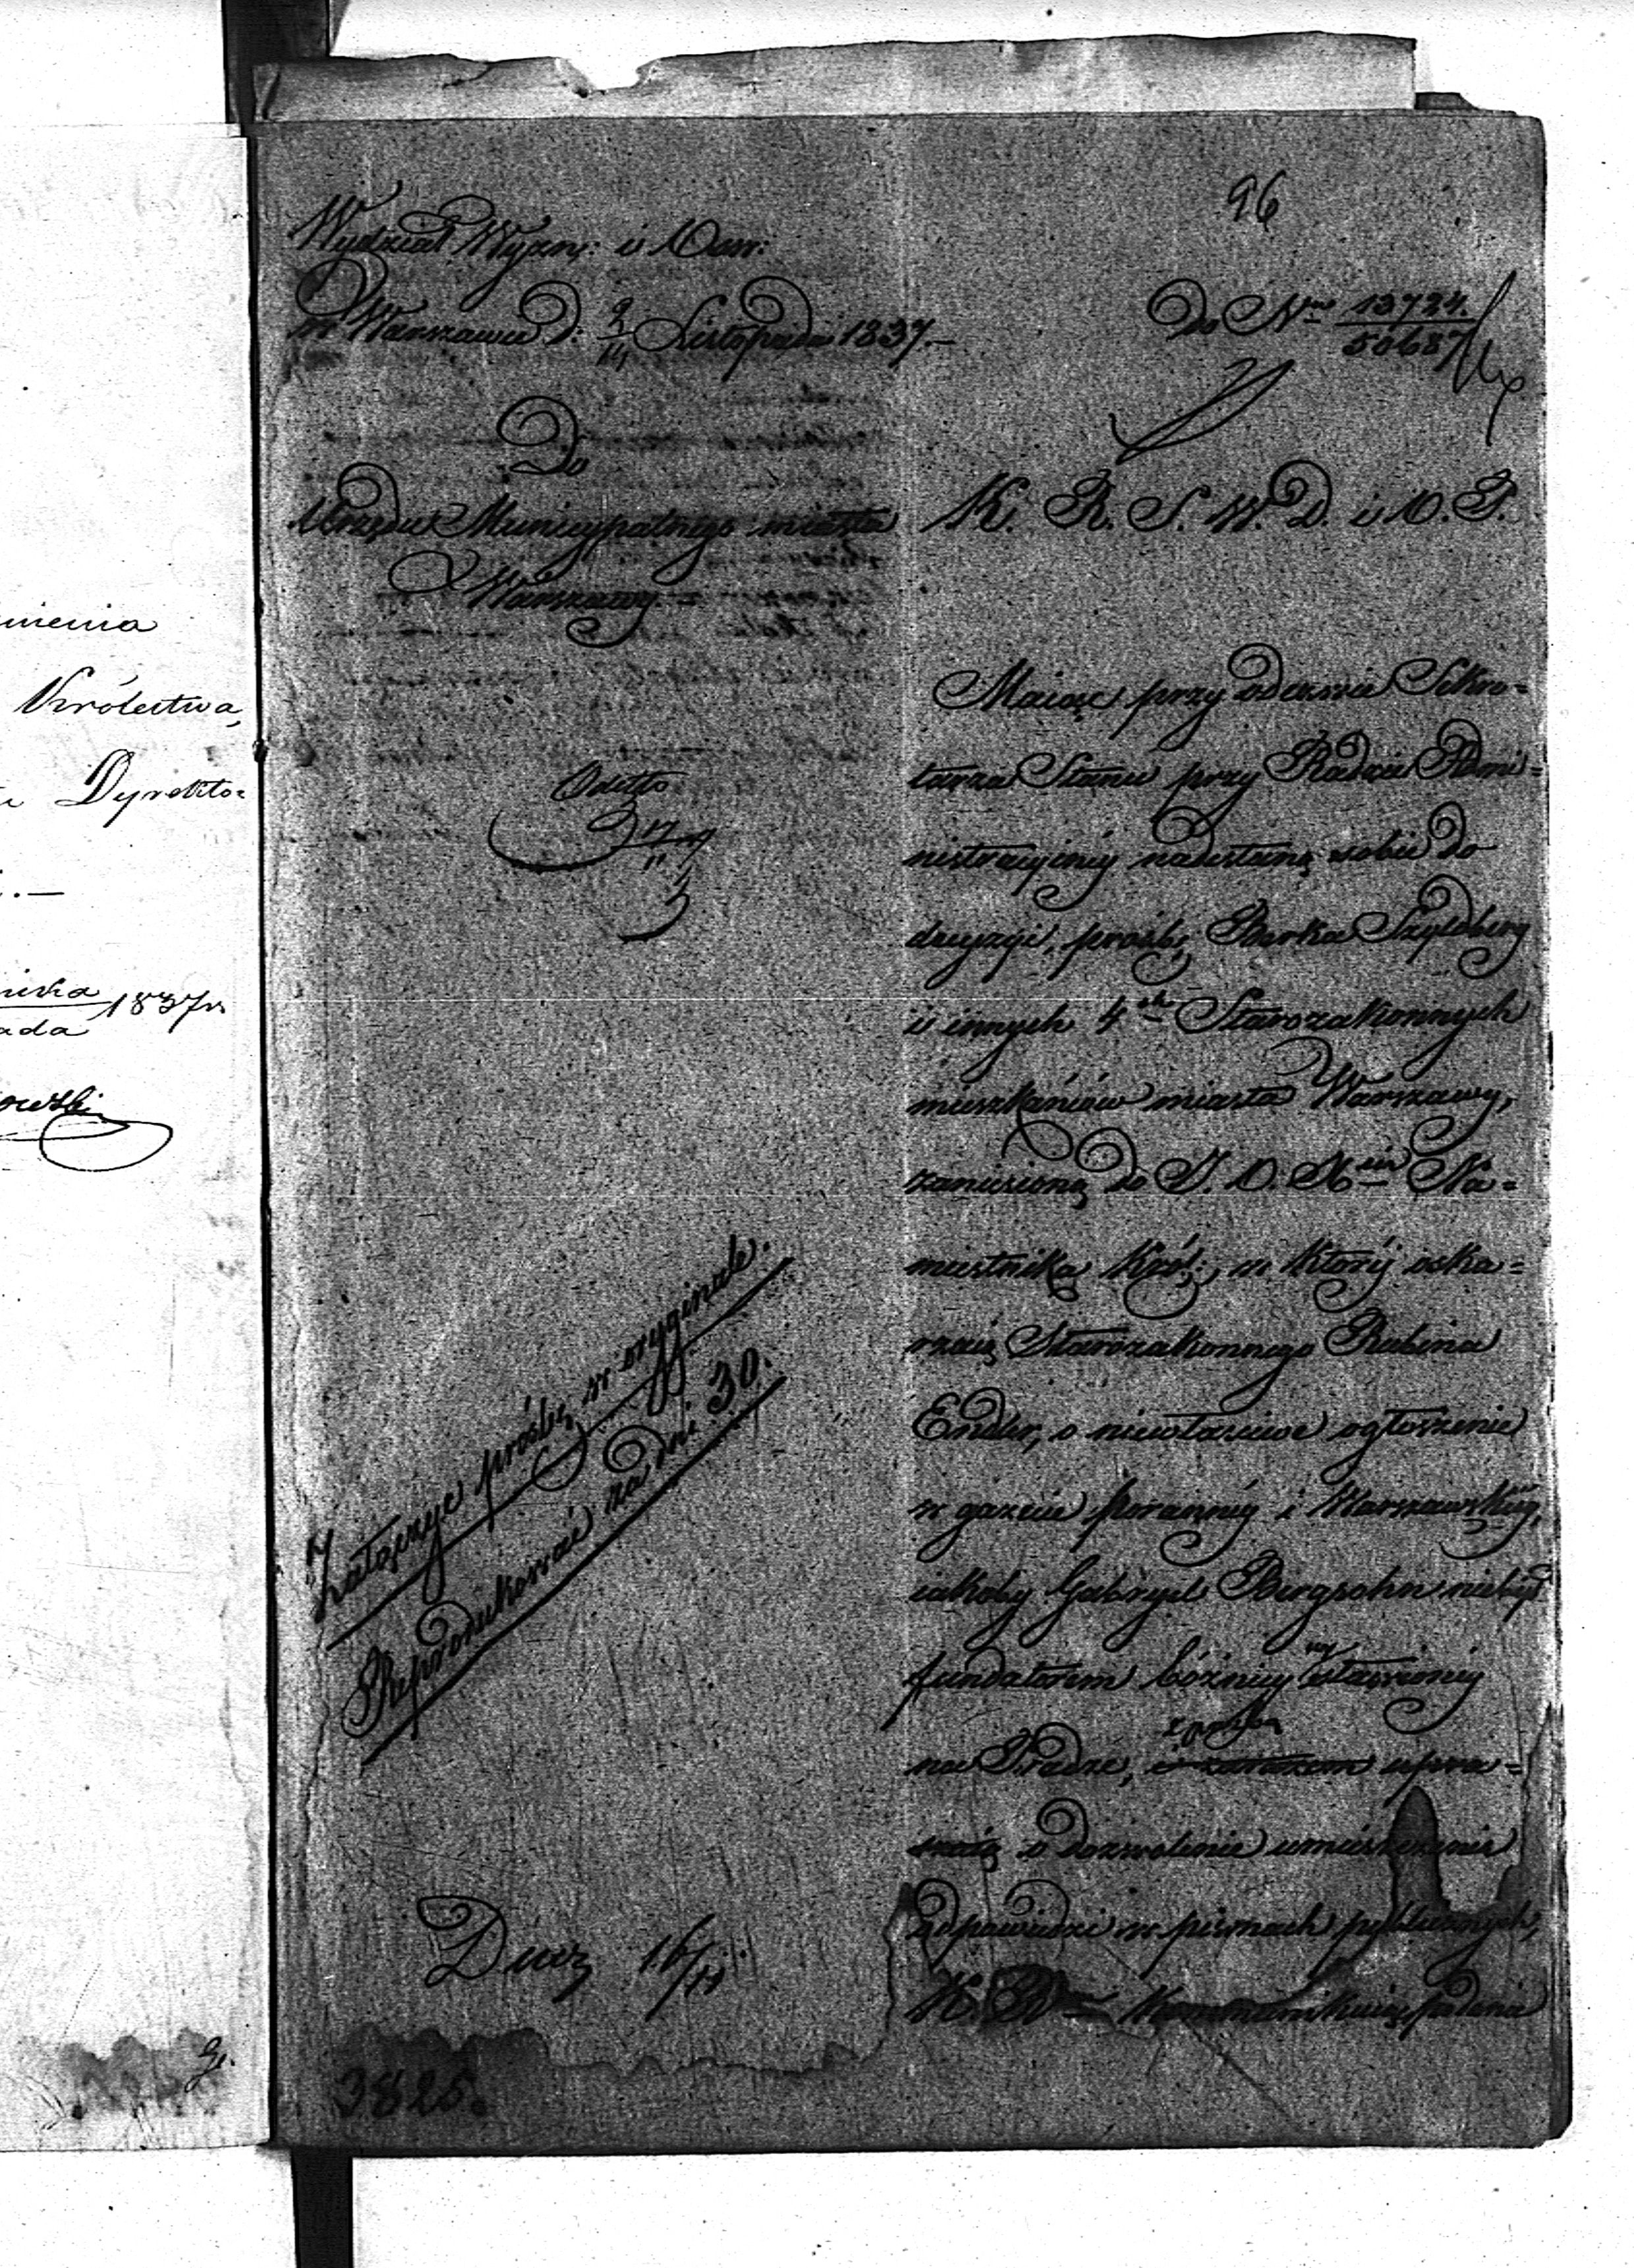 nienia
Królestwa,
Dyrekto=
1837 r.
ada
owski
96
Wydział Wyzn: i Osw:
w Warszawie d: 2/14 Listopada 1837.—
do Nru 13724./50687
Do
Urzędu Municypalnego miasta
Warszawy
K. R. S. W. D. i O. P.
Maiąc przy odezwie Sekre=
tarza Stanu przy Radzie Admi=
nistracyjnéy nadesłaną sobie do
decyzyi, prośbę Berka Szyldberg
i innych 4ch Starozakonnych
mieszkańców miasta Warszawy,
zaniesioną do J. O. Xcia Na=
miestnika Król:, w któréy oska=
rzaią Starozakonnego Rubina
Ender, o niewłaściwe ogłoszenie
w gazecie porannéy i Warszawskiéy,
iakoby Gabryel Bergsohn niebył
fundatorem bóżnicy wystawionéy
na Pradze, z prośbą i zarazem upra=
szaią o dozwolenie umieszczenia
odpowiedzi w pismach publicznych,
K. R. Kommunikuiąc podanie
17/11
Załączyć prośbę w oryginale.
Reprodukować za dni 30.
16/11
3825.